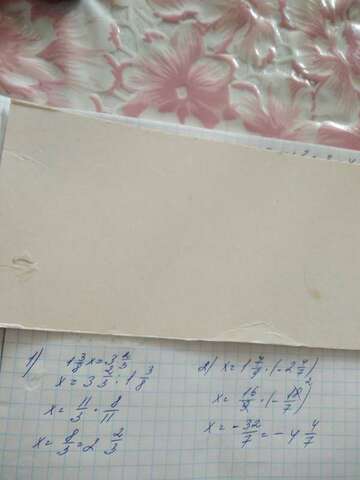 1) 1 3/8 x = 3 2/3
x = 3 2/3 : 1 3/8
x = 11/3 · 8/11
x = 8/3 = 2 2/3
2) x = 1 7/9 · (- 2 4/7)
x = 16/9 · (- 18/7) 2
x = - 32/7 = - 4 4/7